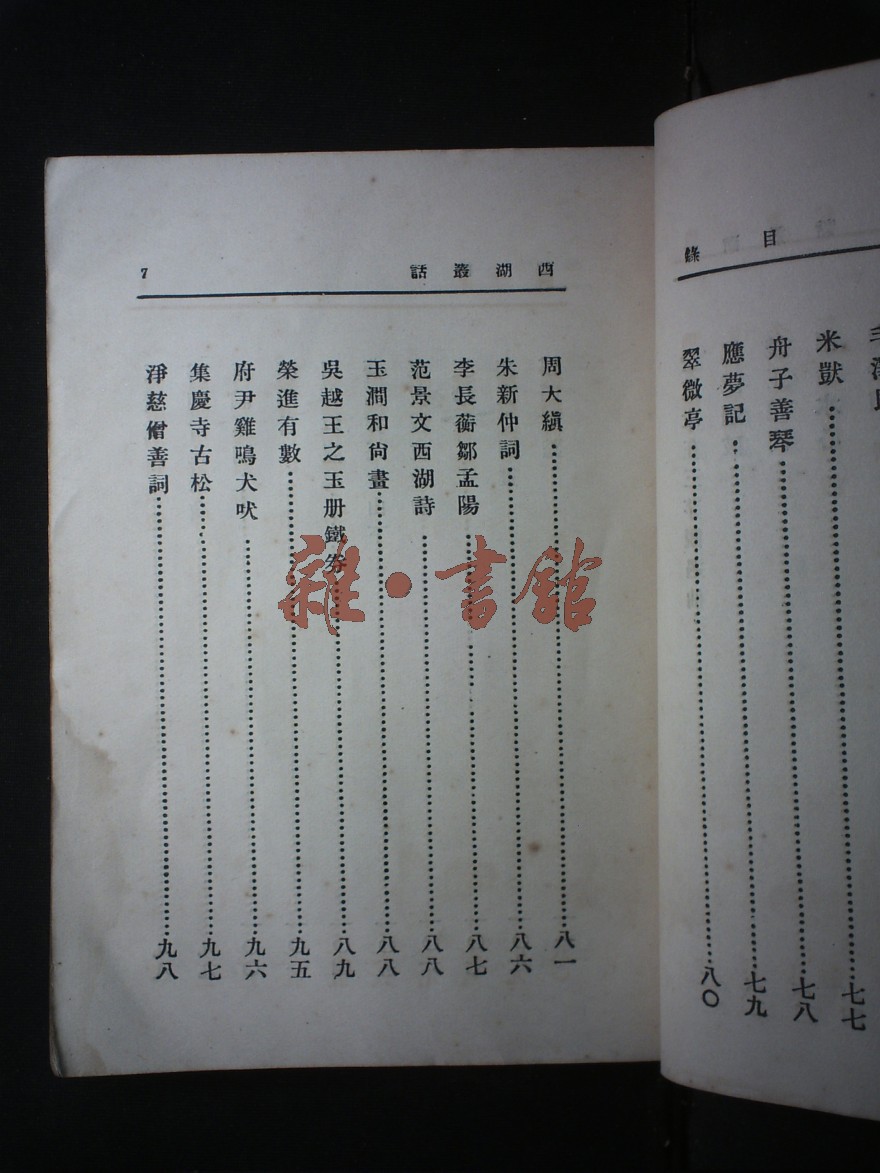 目錄
米獃 七七
舟子善琴 七八
應夢記 七九
翠微亭 八〇
西湖叢話 7
周大縝 八一
朱新仲詞 八六
李長蘅鄒孟陽 八七
范景文西湖詩 八八
玉澗和尙畫 八八
吳越王之玉册鐵券 八九
榮進有數 九五
府尹雞鳴犬吠 九六
集慶寺古松 九七
淨慈僧善詞 九八
雜·書館